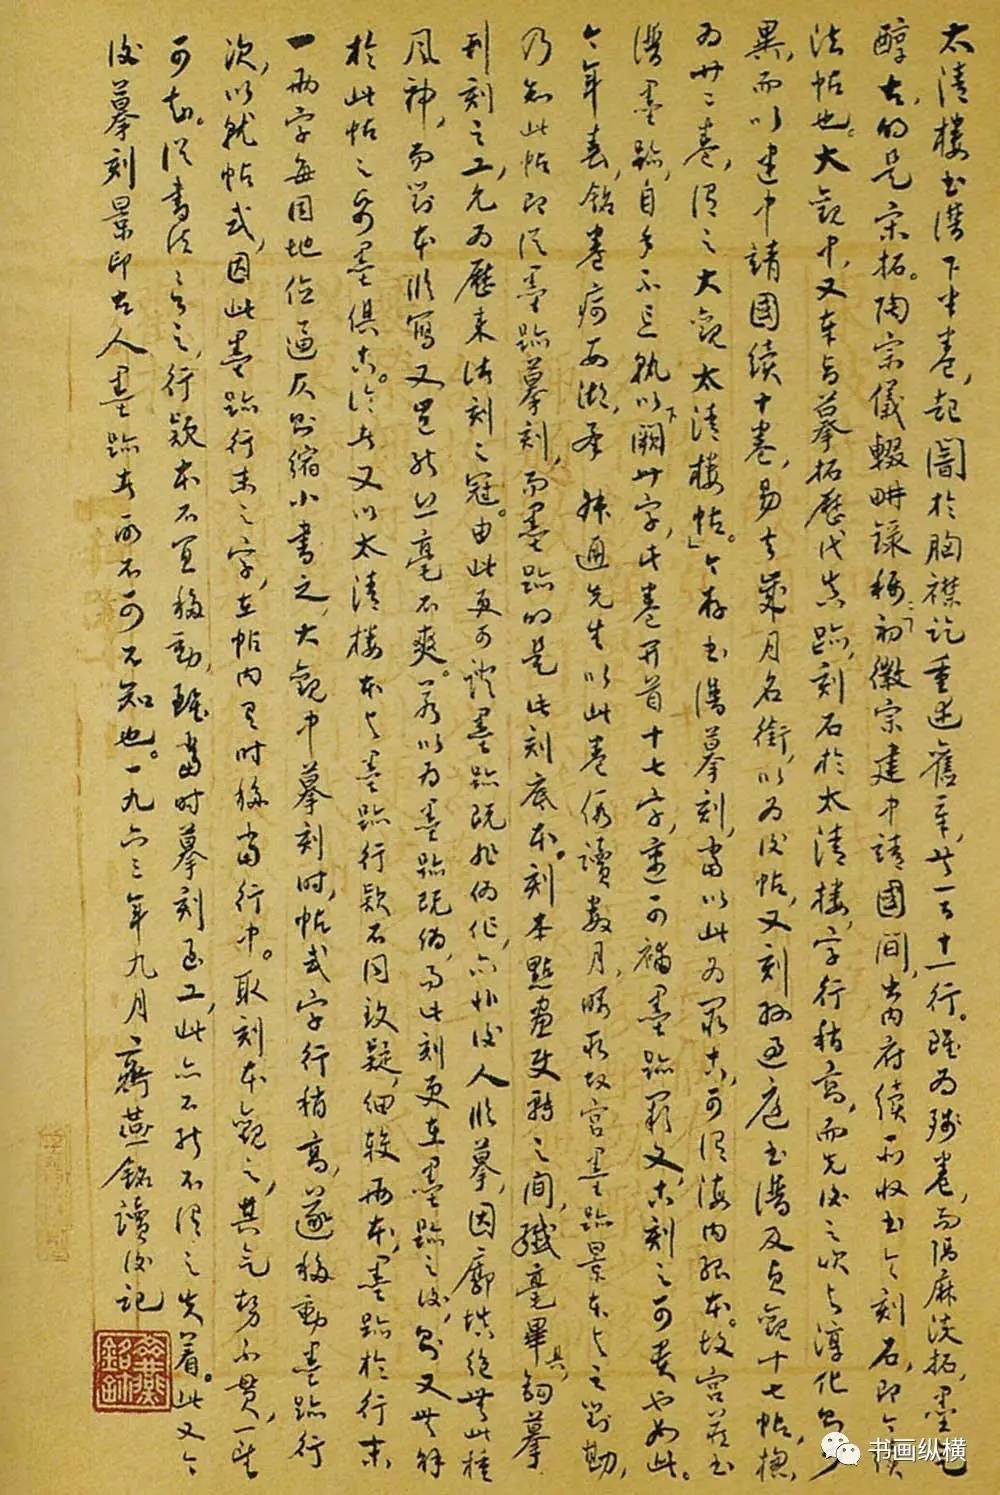 太清楼书谱下半卷,起闇於胸襟讫重述舊章,共一百十一行。雖为残卷,而隔麻淡拓,墨色
醇古,的是宋拓。陶宗儀輟畊録称:「初徽宗建中靖國间,出内府续所收书令刻石,即今续
法帖也。大觀中,又奉旨摹拓歷代真跡,刻石於太清楼,字行稍高,而先後之次与淳化则少
異,而以建中靖國续十卷,易去歲月名銜,以为後帖,又刻孙过庭书谱及贞觀十七帖,總
为廿二卷,谓之大觀太清楼帖。」今存书谱摹刻,当以此为最古,可谓海内孤本。故宫藏书
谱墨跡,自多不忘执以下阙卅字,此卷开首十七字,適可補墨跡阙文,古刻之可贵也如此。
今年春,銘卷病西湖,承 通先生以此卷假讀数月,暇取故宫墨跡景本与之对勘,
乃知此帖即從墨跡摹刻,而墨跡的是此刻底本。刻本點畫使轉之间,纖毫畢具,鉤摹
刊刻之工,允为歷来法刻之冠。由此更可证墨跡既非伪作,亦非後人临摹,因廓填絶无此種
風神,而对本临寫又豈能丝毫不爽。若以为墨跡既伪,而此刻更在墨跡之後,则又无解
於此帖之纸墨俱古。论者又以太清楼本与墨跡行款不同致疑,细较两本,墨跡於行末
一两字每因地位逼仄则缩小书之,大觀中摹刻时,帖式字行稍高,遂移動墨跡行
次,以就帖式,因此墨跡行末之字,在帖内有时移当行中。取刻本觀之,其气势不贯,一望
可知。從书法言之,行款本不宜移動,雖当时摹刻至工,此亦不能不谓之失着。此又今
後摹刻景印古人墨跡者所不可不知也。一九六三年九月齊燕銘讀後记
齊燕銘鉥
书画纵横